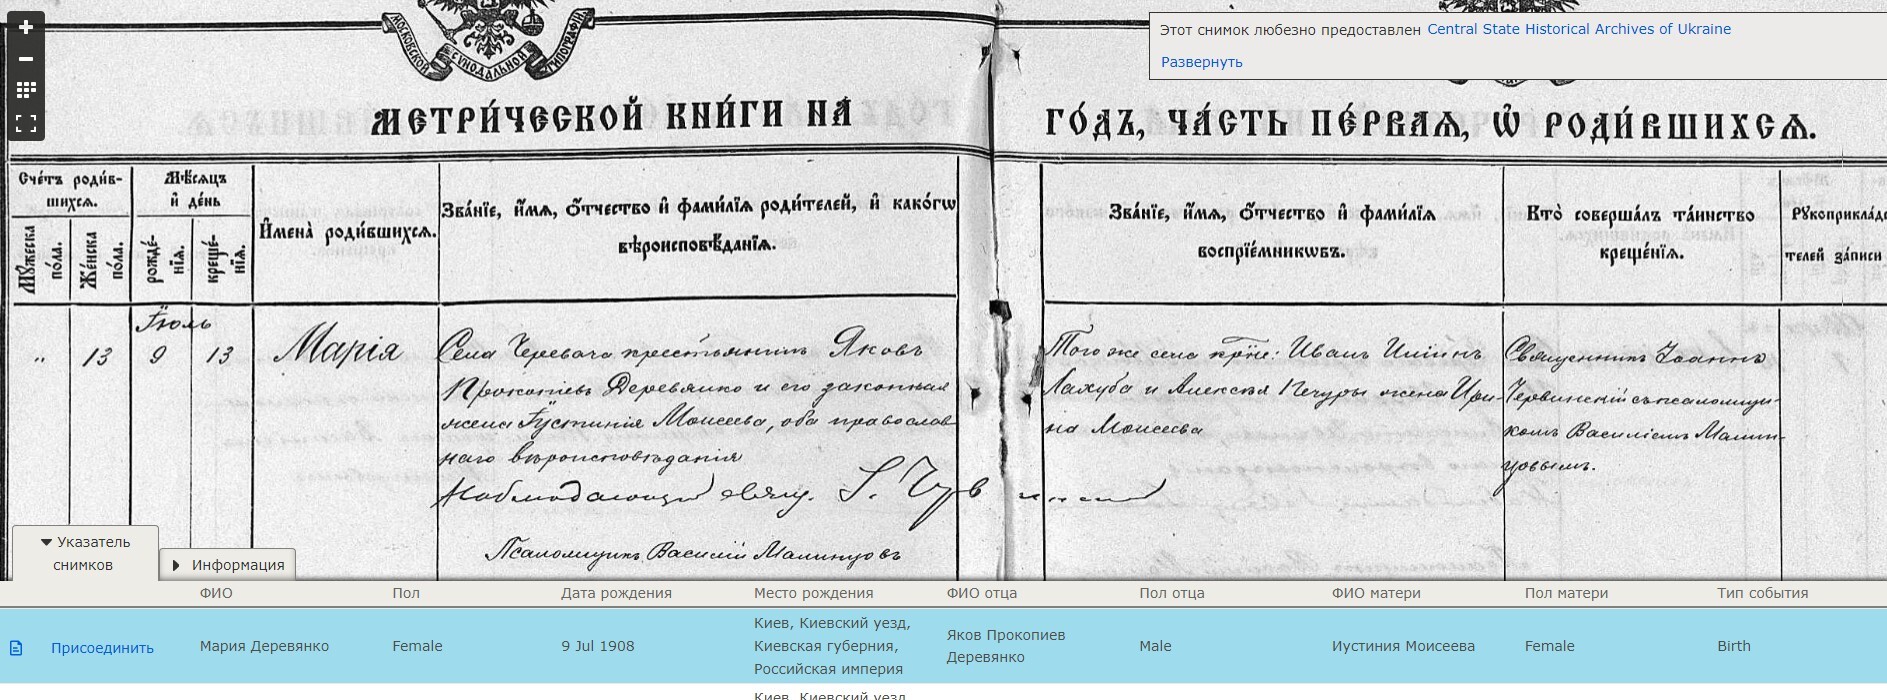 МОСКОВСКОЙ СѴНОДАЛЬНОЙ ТИПОГРАФІИ
Этот снимок любезно предоставлен Central State Historical Archives of Ukraine
Развернуть
МЕТРИ́ЧЕСКОЙ КНИ́ГИ НА̀
ГО́ДЪ, ЧА́СТЬ ПЕ́РВАѦ, Ѡ҆ РОДИ́ВШИХСѦ.
Сче́тъ роди́в-
шихсѧ.
Мꙋ́жеска по́ла.
Же́нска по́ла.
Мѣ́сѧцъ
и҆ де́нь
рожде́-
нїѧ.
креще́-
нїѧ.
И҆мена̀ роди́вшихсѧ.
Зва́нїе, и҆́мѧ, ѻ҆́тчество и҆ фами́лїѧ роди́телей, и҆ како́гѡ
вѣроисповѣ́данїѧ.
Зва́нїе, и҆́мѧ, ѻ҆́тчество и҆ фами́лїѧ
воспрїе́мникѡвъ.
Кто̀ соверша́лъ та́инство
креще́нїѧ.
Рꙋкоприкла́д
телей за́писи
Іюль
„ 13 9 13 Марія
Села Черевача крестьянинъ Яковъ
Прокопіевъ Деревянко и его законная
жена Іустинія Моисеева, оба православ
наго вѣроисповѣданія
Наблюдающій свящ.
Псаломщикъ Василій Малинцовъ
Того же села крѣне: Иванъ
Лахуба и Алексѣя Печуры жена Ири-
на Моисеева
Священникъ Іоаннъ
Червинскій съ псаломщи-
комъ Василіемъ Малин-
цовымъ.
Указатель
снимков
Информация
ФИО Пол Дата рождения Место рождения ФИО отца Пол отца ФИО матери Пол матери Тип события
Присоединить Мария Деревянко Female 9 Jul 1908
Киев, Киевский уезд,
Киевская губерния,
Российская империя
Яков Прокопиев
Деревянко
Male Иустиния Моисеева Female Birth
Киев, Киевский уезд,